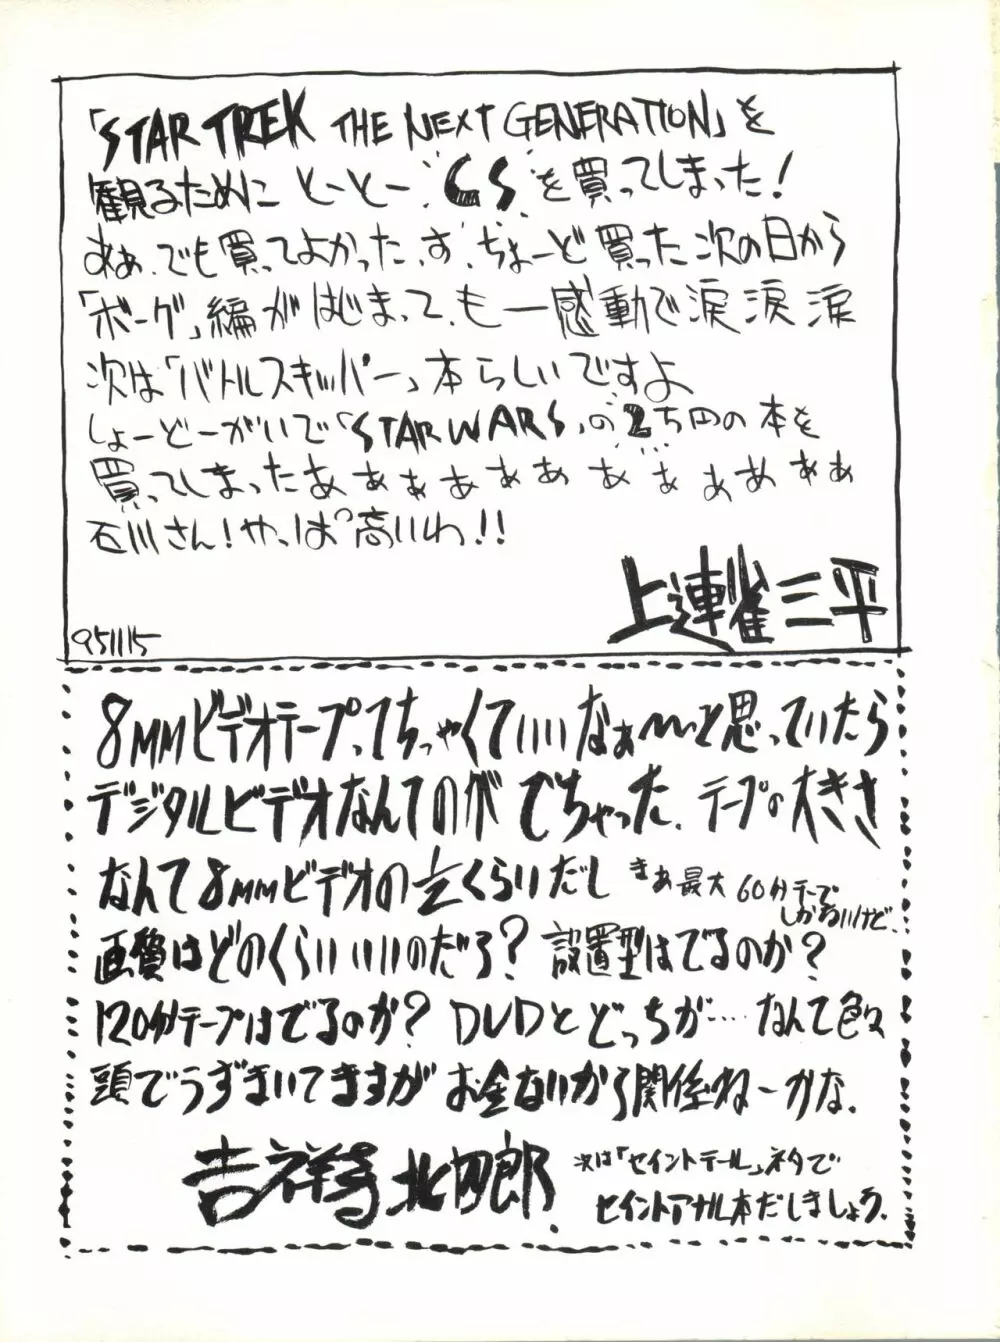 「STAR TREK THE NEXT GENERATION」を
観るために とーとー"CS"を買ってしまった!
あぁ、でも買ってよかったっす、ちょーど買った次の日から
「ボーグ」編がはじまって、も一感動で涙涙涙
次は「バトルスキッパー」本らしいですよ
しょーどーがいで「STAR WARS」の25円の本を
買ってしまったあぁぁぁぁぁぁぁぁぁぁぁ
石川さん!やっぱ高いわ!!
上連雀三平
951115
8MMビデオテープってちっちゃくていいなぁ〜と思っていたら
デジタルビデオなんてのがでちゃった、テープの大きさ
なんて8MMビデオの1/2くらいだし まぁ最大60分テープ
しかないけど、
画質はどのくらいいいのだろ?設置型はでるのか?
120分テープはでるのか?DVDとどっちが‥‥なんて色々
頭でうずまいてますがお金ないから関係ねーかな、
吉祥寺北四郎
次は「セイントテール」ネタで
セイントアナル本だしましょう、